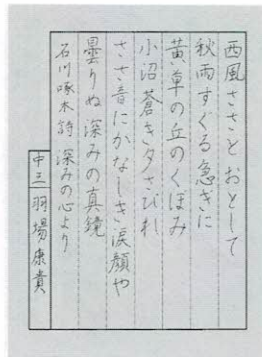 西風ささとおとして
秋雨すぐる急ぎに
黄草の丘のくぼみ
小沼蒼き夕さびれ
ささ音にかなしき涙顔や
曇りぬ深みの真鏡
石川啄木詩 深みの心より
中三 羽場康貴